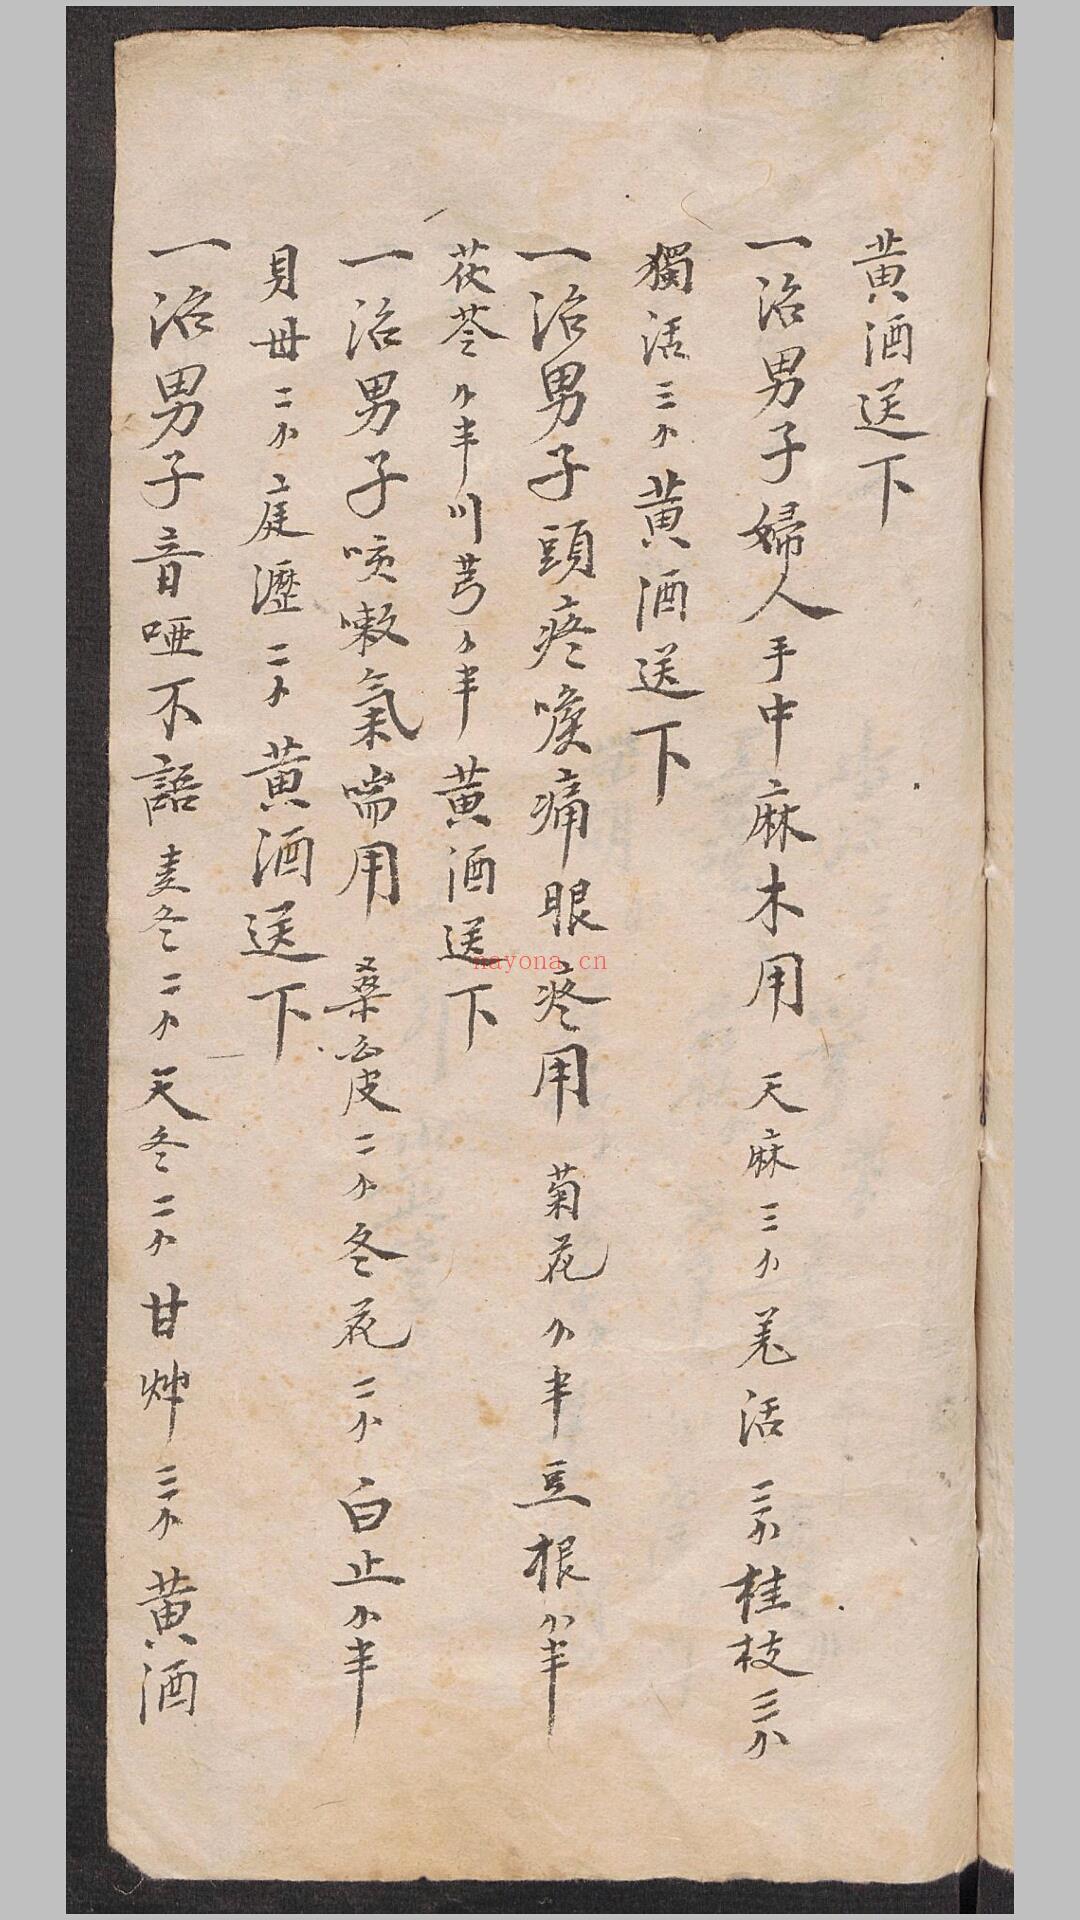 黄酒送下
一治男子婦人手中麻木用天麻三小羌活三小桂枝三小
獨活三小黄酒送下
一治男子頭疼喉痛眼疼用菊花小半豆根小半
茯苓小半川芎小半黄酒送下
一治男子咳嗽氣喘用桑白皮二小冬花二小白止小半
貝母二小庭瀝二小黄酒送下
一治男子音哑不語麦冬二小天冬二小甘艸三小黄酒
nayona.cn